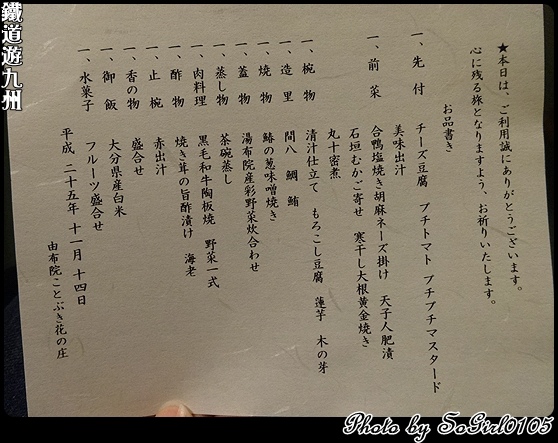 鐵道遊九州
★本日は、ご利用誠にありがとうございます。
心に残る旅となりますよう、お祈りいたします。
お品書き
一、先 付 チーズ豆腐 プチトマト プチプチマスタード
美味出汁
一、前 菜 合鴨塩焼き胡麻ネーズ掛け 天子人肥漬
石垣むかご寄せ 寒干し大根黄金焼き
丸十密煮
一、椀 物 清汁仕立て もろこし豆腐 蓮芋 木の芽
一、造 里 間八 鯛 鮪
一、焼 物 鰆の葱味噌焼き
一、蓋 物 湯布院産彩野菜炊合わせ
一、蒸し物 茶碗蒸し
一、肉料理 黒毛和牛陶板焼 野菜一式
一、酢 物 焼き茸の旨酢漬け 海老
一、止 椀 赤出汁
一、香の物 盛合せ
一、御 飯 大分県産白米
一、水菓子 フルーツ盛合せ
平成 二十五年 十一月 十四日
由布院ことぶき花の庄
Photo by SoGirl0105